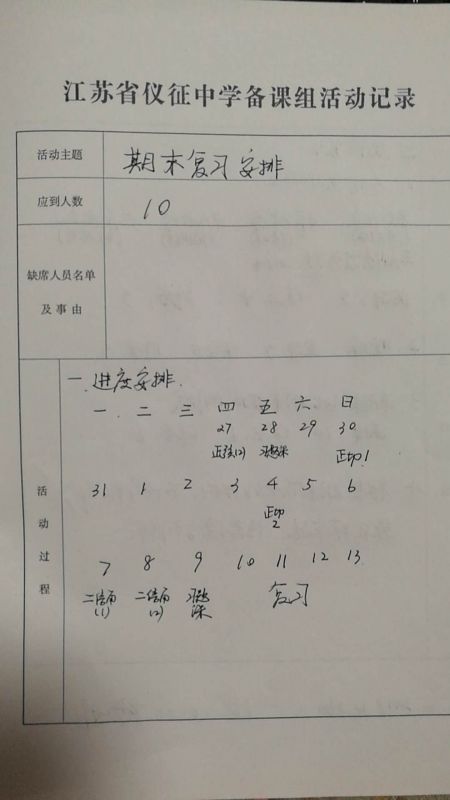 江苏省仪征中学备课组活动记录
活动主题
期末复习安排
应到人数
10
缺席人员名单
及事由
活动过程
一.进度安排.
一.二 三 四 五 六 日
27 28 29 30
正弦(2) 习题课 正印1
31 1 2 3 4 5 6
正印
2
7 8 9 10 11 12 13
(1) (2) 复习